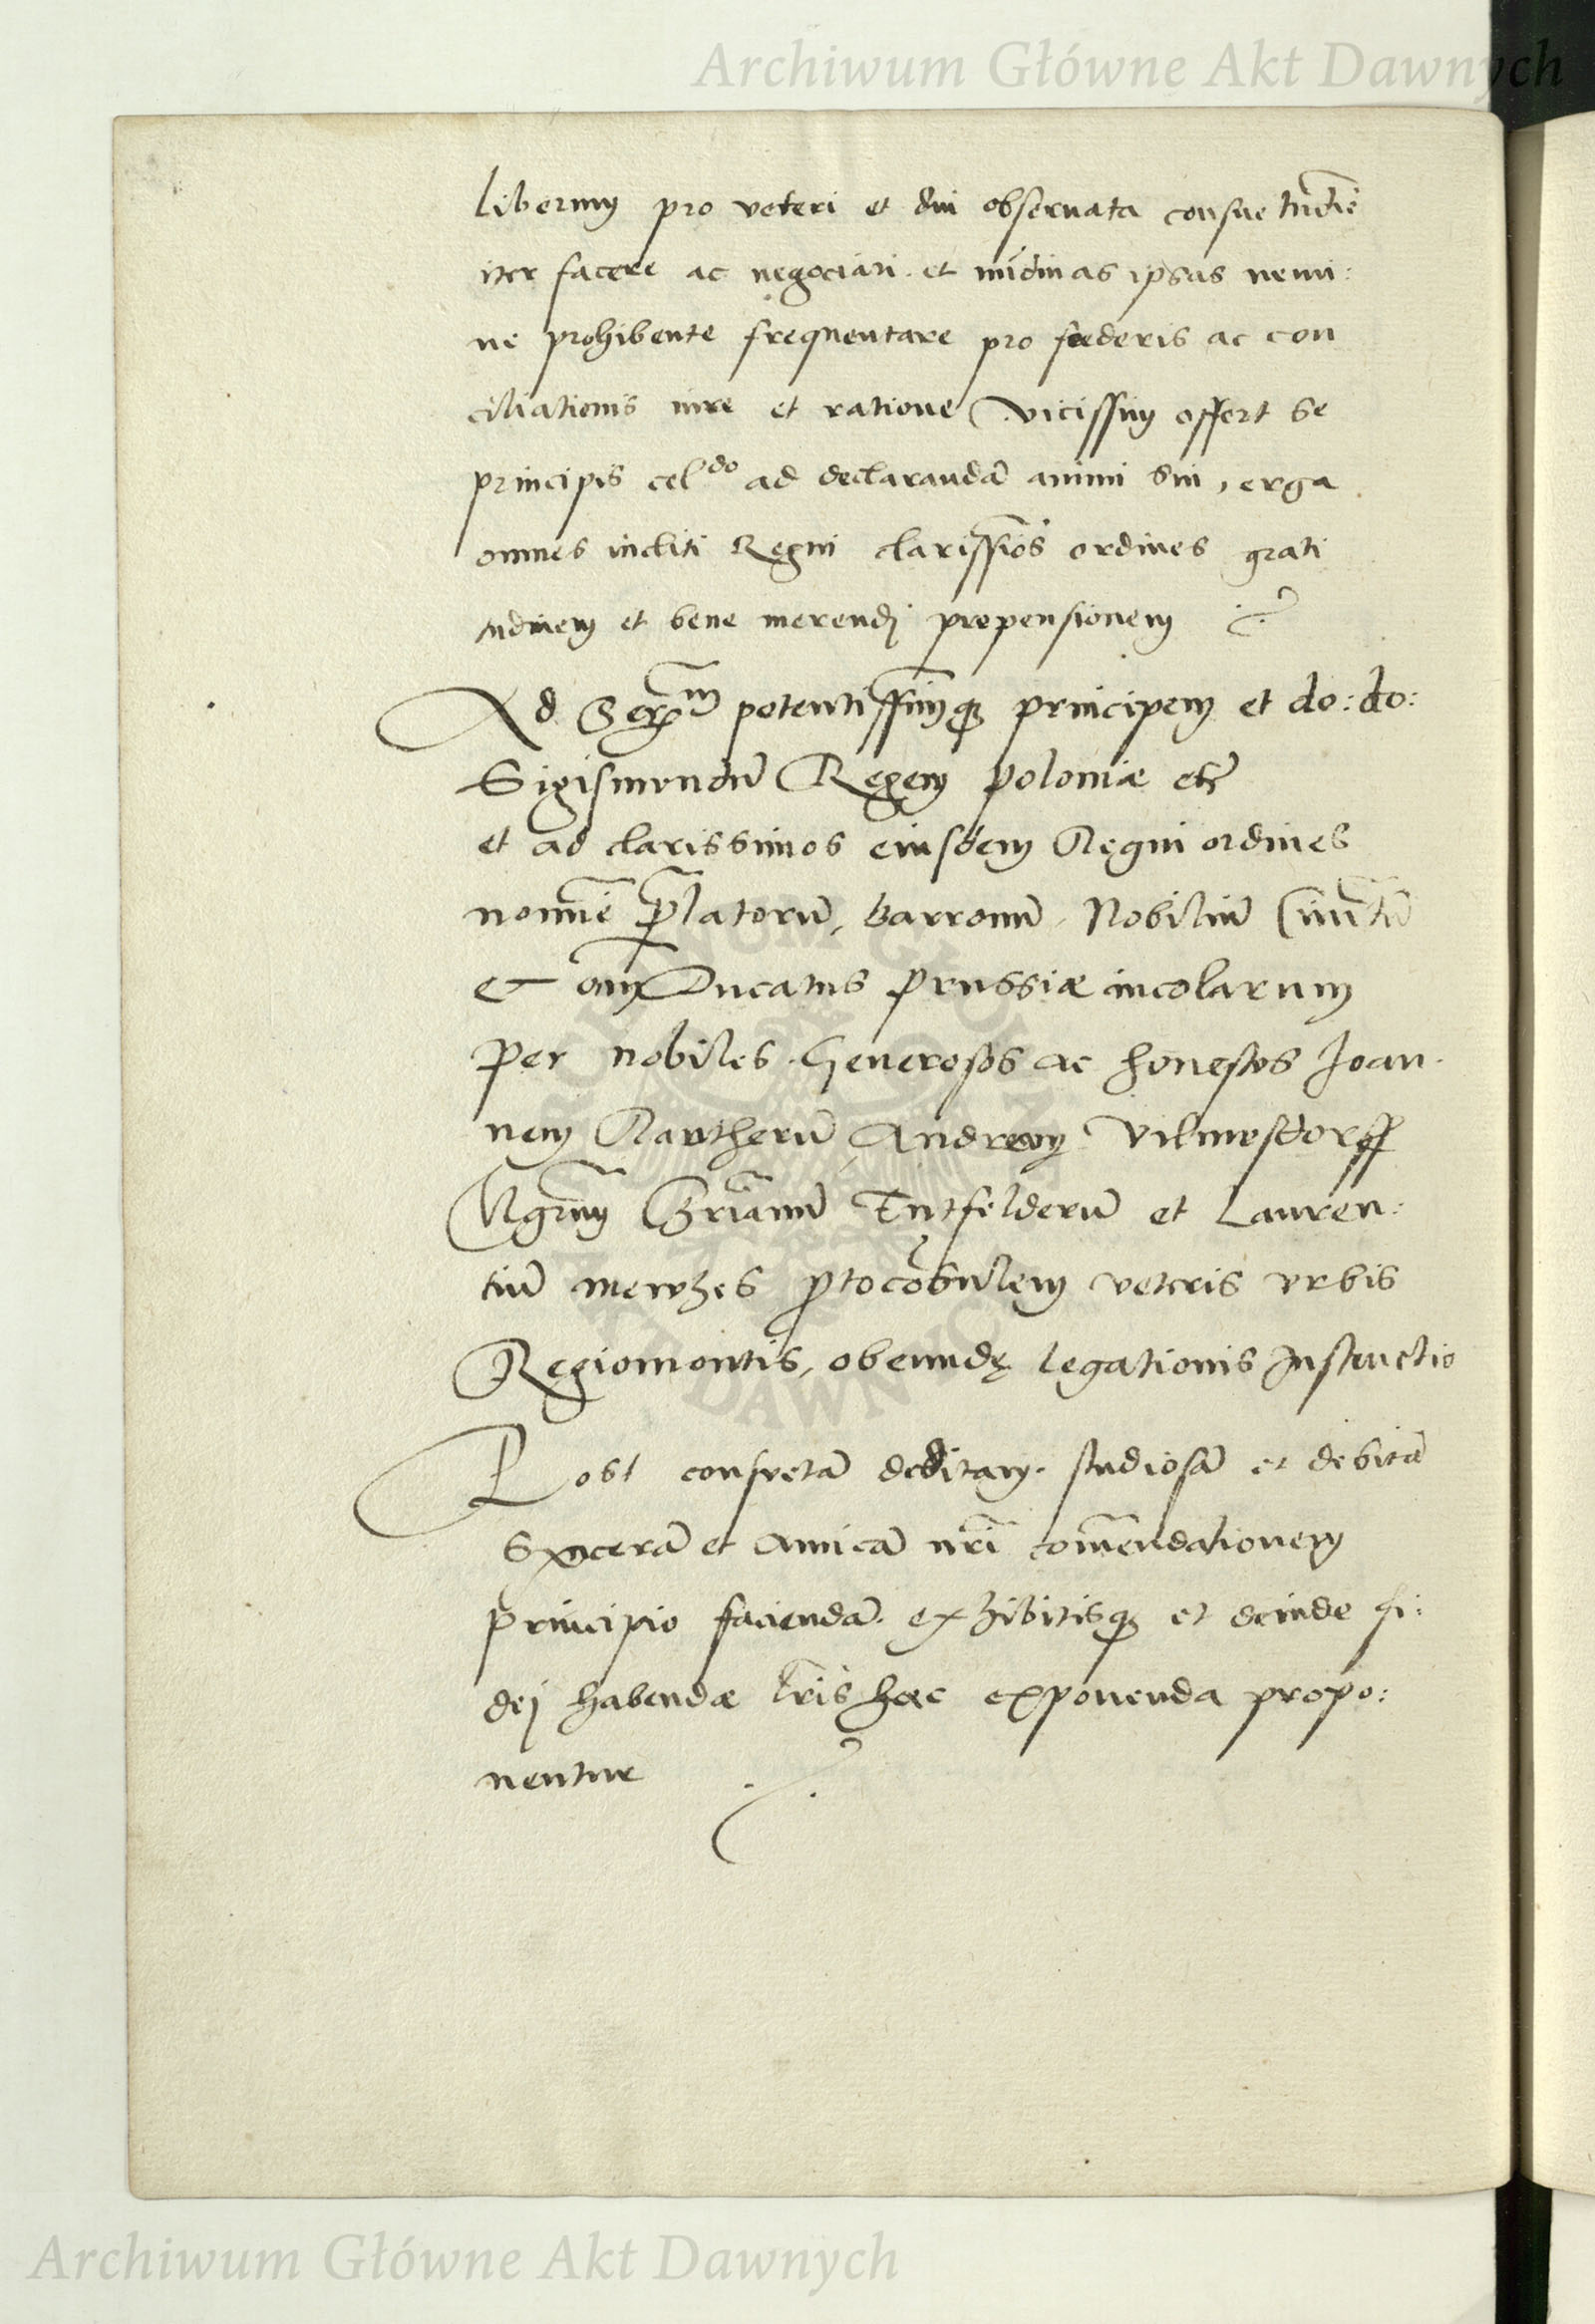 Archiwum Główne Akt Dawnych
liberum pro veteri et diu obseruata consuetudīe
iter facere ac negociari et nūdinas ipsas nemi:
ne prohibente frequentare pro fœderis ac con
ciliationis iure et ratione Vicissim offert se
principis cel^do ad declarandā animi sui, erga
omnes incliti Regni clarissīos ordines grati
tudinem et bene merendi propensionem
Ad Ser^m potentissimūq3 principem et do: do:
Sigismundū Regem Poloniæ etc̄
et ad clarissimos eiusdem Regni ordines
nomīe p̄latorū, barronū, Nobiliū Ciuītū
et oīm Ducatus Prussiæ incolarum
Per nobiles Generosos ac honestos Joan
nem Rautherū Andream Vilmesdorff
Mgr̄um Chr̄ianū Entfelderū et Lauren:
tiū ptocōsulem veteris vrbis
Regiomontis, obeundę legationis Instructio
Post consuetā deditam studiosā et debitā
Syncerā et amicā nr̄i com̄endationem
principio faciendā exhibitisq3 et deinde fi:
dei habendæ l̄ris hæc exponenda propo:
nentur
Archiwum Główne Akt Dawnych